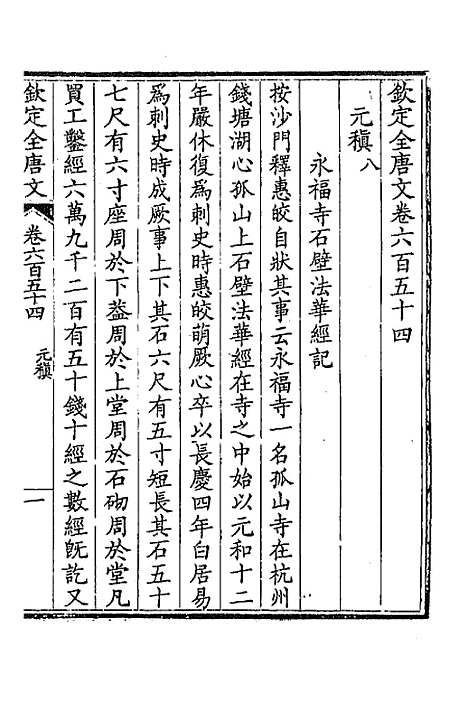 欽定全唐文卷六百五十四
元稹八
永福寺石壁法華經記
按沙門釋惠皎自狀其事云永福寺一名孤山寺在杭州
錢塘湖心孤山上石壁法華經在寺之中始以元和十二
年嚴休復爲刺史時惠皎萌厥心卒以長慶四年白居易
爲刺史時成厥事上下其石六尺有五寸短長其石五十
七尺有六寸座周於下葢周於上堂周於石砌周於堂凡
買工鑿經六萬九千二百有五十錢十經之數經旣訖又
欽定全唐文
卷六百五十四
元稹
一